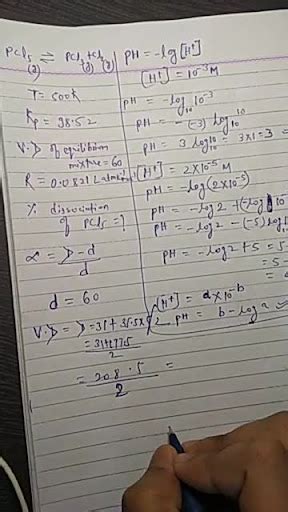 PCl5 ⇌ PCl3 + Cl2
(g) (g) (g)
T = 500K
Kp = 38.52
V.D of equilibrium
mixture = 60
R = 0.0821 L atm
% dissociation
of PCl5 = ?
α = D - d
d
d = 60
V.D = D = 31 + 35.5x
2
=
2
= 208.5 =
2
PH = -log[H+]
[H+] = 10^-3 M
PH = -log10 10^-3
PH = -(-3) log10 10
PH = 3 log10 10 = 3x1 = 3
[H+] = 2x10^-5 M
PH = -log(2x10^-5)
PH = -log2 + (-log 10
PH = -log2 - (-5) log
PH = -log2 + 5 = 5
= 5 -
=
[H+] = a x 10^-b
PH = b - log a